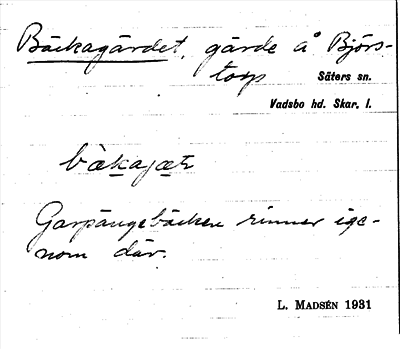 Bäckagärdet, gärde å Björs-
torp
Säters sn.
Vadsbo hd. Skar. l.
bàkajæ
Garpängsbäcken rinner ige-
nom där.
L. MADSÉN 1931